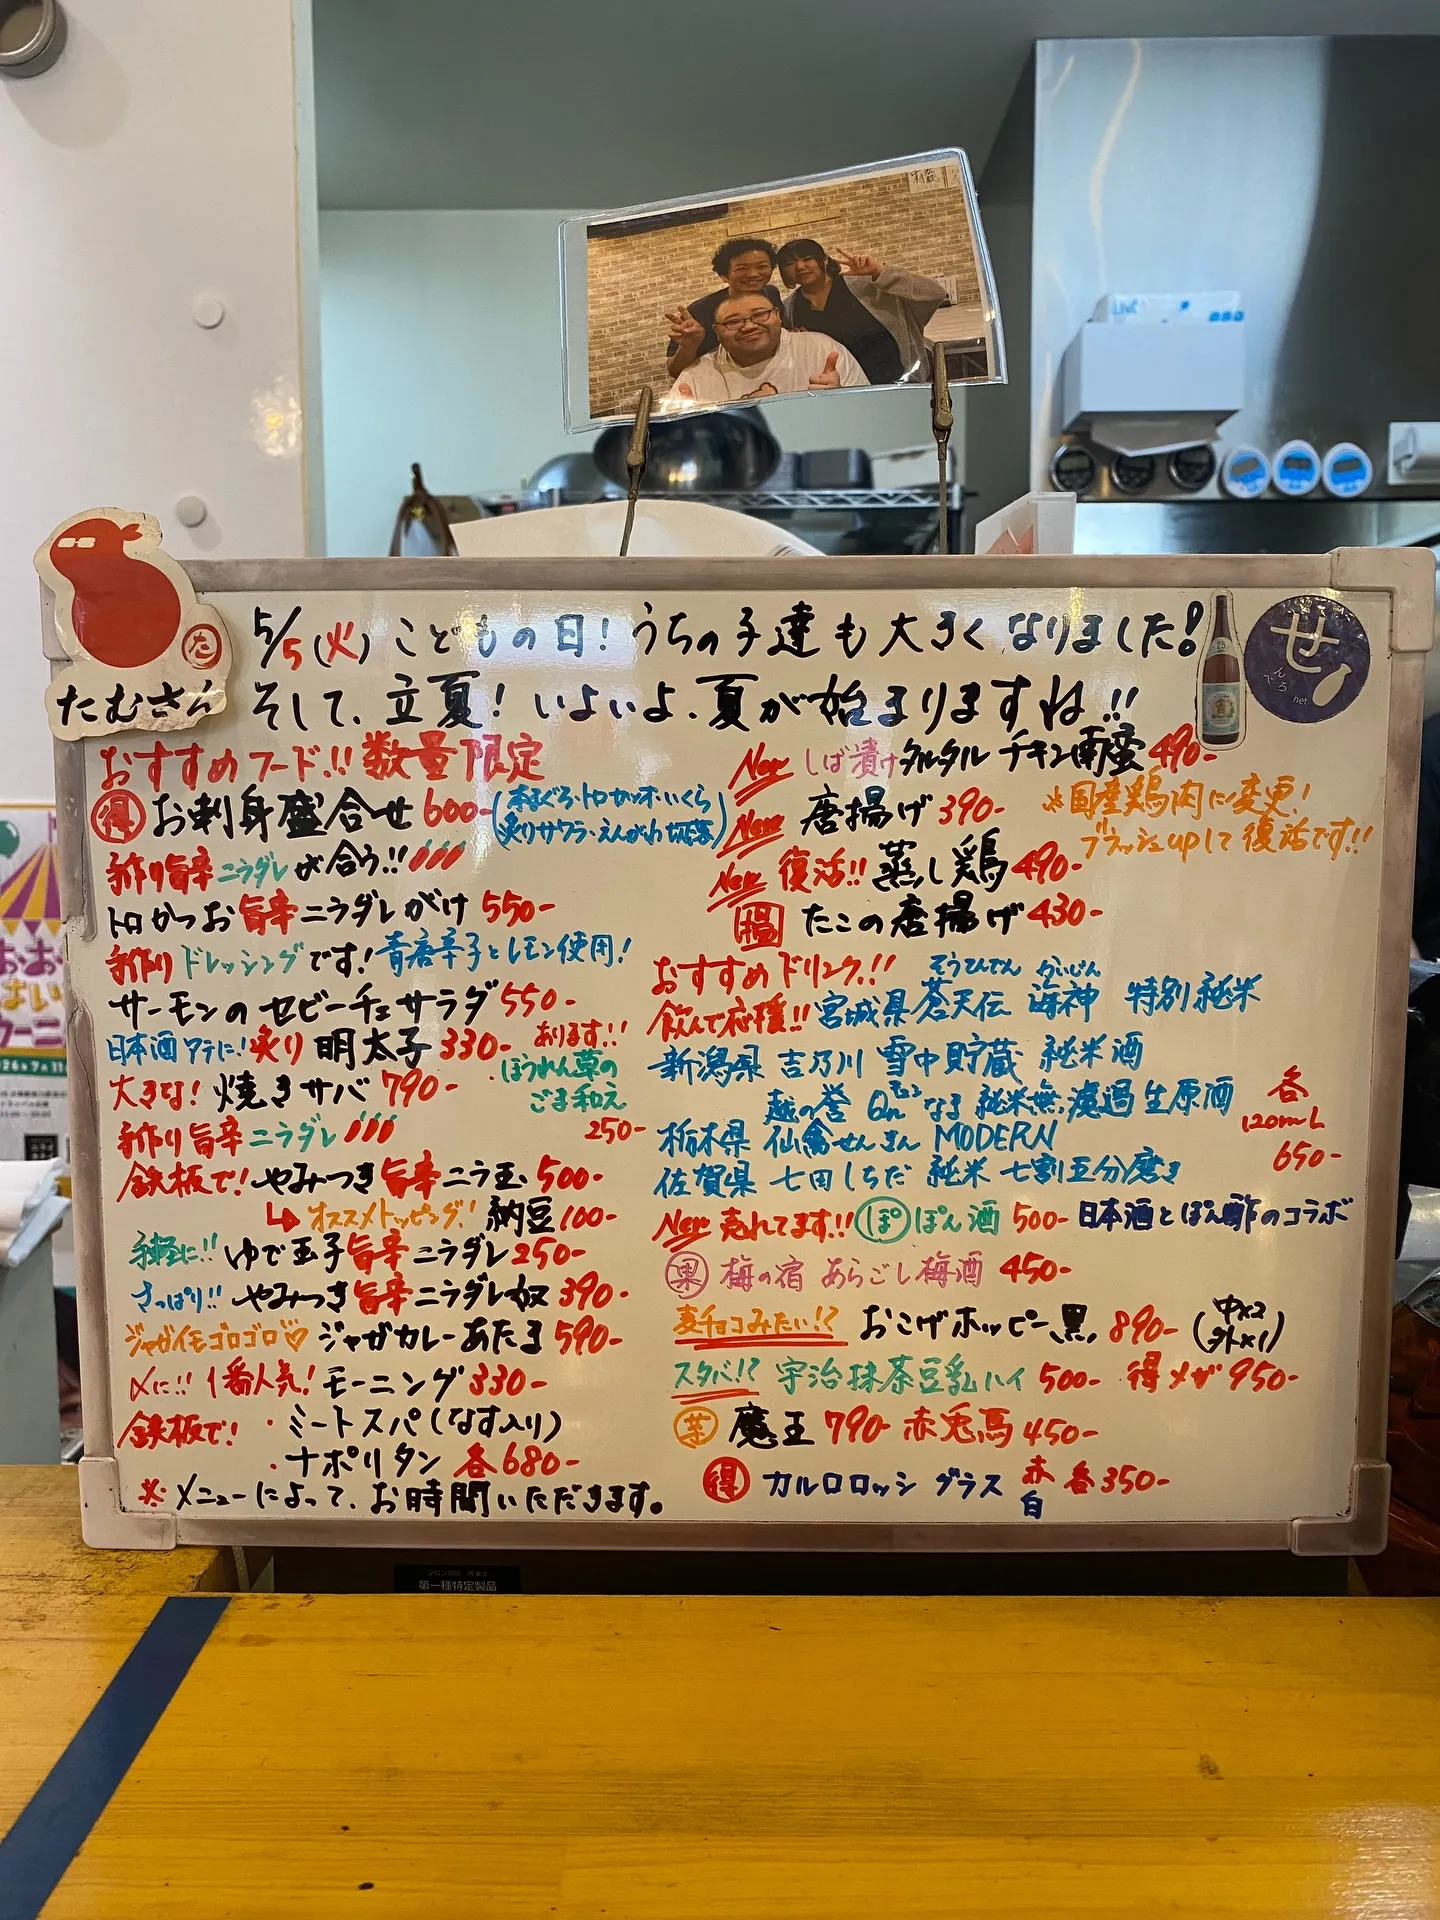 5/5(火)こどもの日!うちの子達も大きくなりました!
そして、立夏!いよいよ、夏が始まりますね!!
たむさん
た
せ
でんち
net
おすすめフード!!数量限定
得 お刺身盛合せ 600-
(本まぐろ・トロカツオ・いくら
炙りサワラ・えんがわ・切落)
手作り旨辛ニラダレが合う!!
トロかつお旨辛ニラダレがけ 550-
手作りドレッシングです!青唐辛子とレモン使用!
サーモンのセビーチェサラダ 550-
日本酒アテに!炙り明太子 330-
大きな!焼きサバ 790-
あります!!
ほうれん草の
ごま和え
250-
手作り旨辛ニラダレ
鉄板で!やみつき旨辛ニラ玉 500-
オススメトッピング!納豆 100-
手軽に!!ゆで玉子旨辛ニラダレ 250-
さっぱり!!やみつき旨辛ニラダレ奴 390-
ジャガイモゴロゴロ♡ジャガカレーあたま 590-
〆に!!1番人気!モーニング 330-
鉄板で!・ミートスパ(なす入り)
・ナポリタン 各680-
※メニューによって、お時間いただきます。
New しば漬けタルタル チキン南蛮 490-
New 唐揚げ 390-
※国産鶏肉に変更!
ブラッシュupして復活です!!
New 復活!!蒸し鶏 490-
揚 たこの唐揚げ 430-
おすすめドリンク!!
飲んで応援!!宮城県 蒼天伝 海神 特別純米
そうてんでん かいじん
新潟県 吉乃川 雪中貯蔵 純米酒
越の誉 Qnなる 純米無濾過生原酒
栃木県 仙禽せんきん MODERN
佐賀県 七田しちだ 純米 七割五分磨き
各
120mL
650-
New 売れてます!!ぽ ぽん酒 500- 日本酒とぽん酢のコラボ
果 梅の宿 あらごし梅酒 450-
麦チョコみたい!?おこげホッピー黒 890- (中×2
外×1)
スタバ!?宇治抹茶豆乳ハイ 500- 得メガ 950-
芋 魔王 790- 赤兎馬 450-
得 カルロロッシ グラス 赤 各350-
白
第一種特定製品